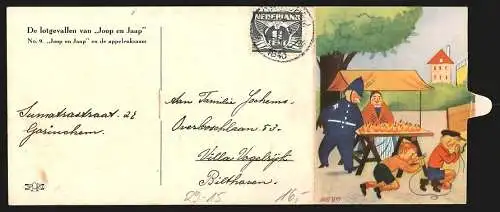 De lotgevallen van „Joop en Jaap"
No. 9. „Joop en Jaap" en de appelenkraam
Sumatrastraat 21
Gorinchem.
NEDERLAND
Aan Familie Jochems.
Overboschlaan 53.
Villa Vogelrijk
Bilthoven.
29-15
16,-